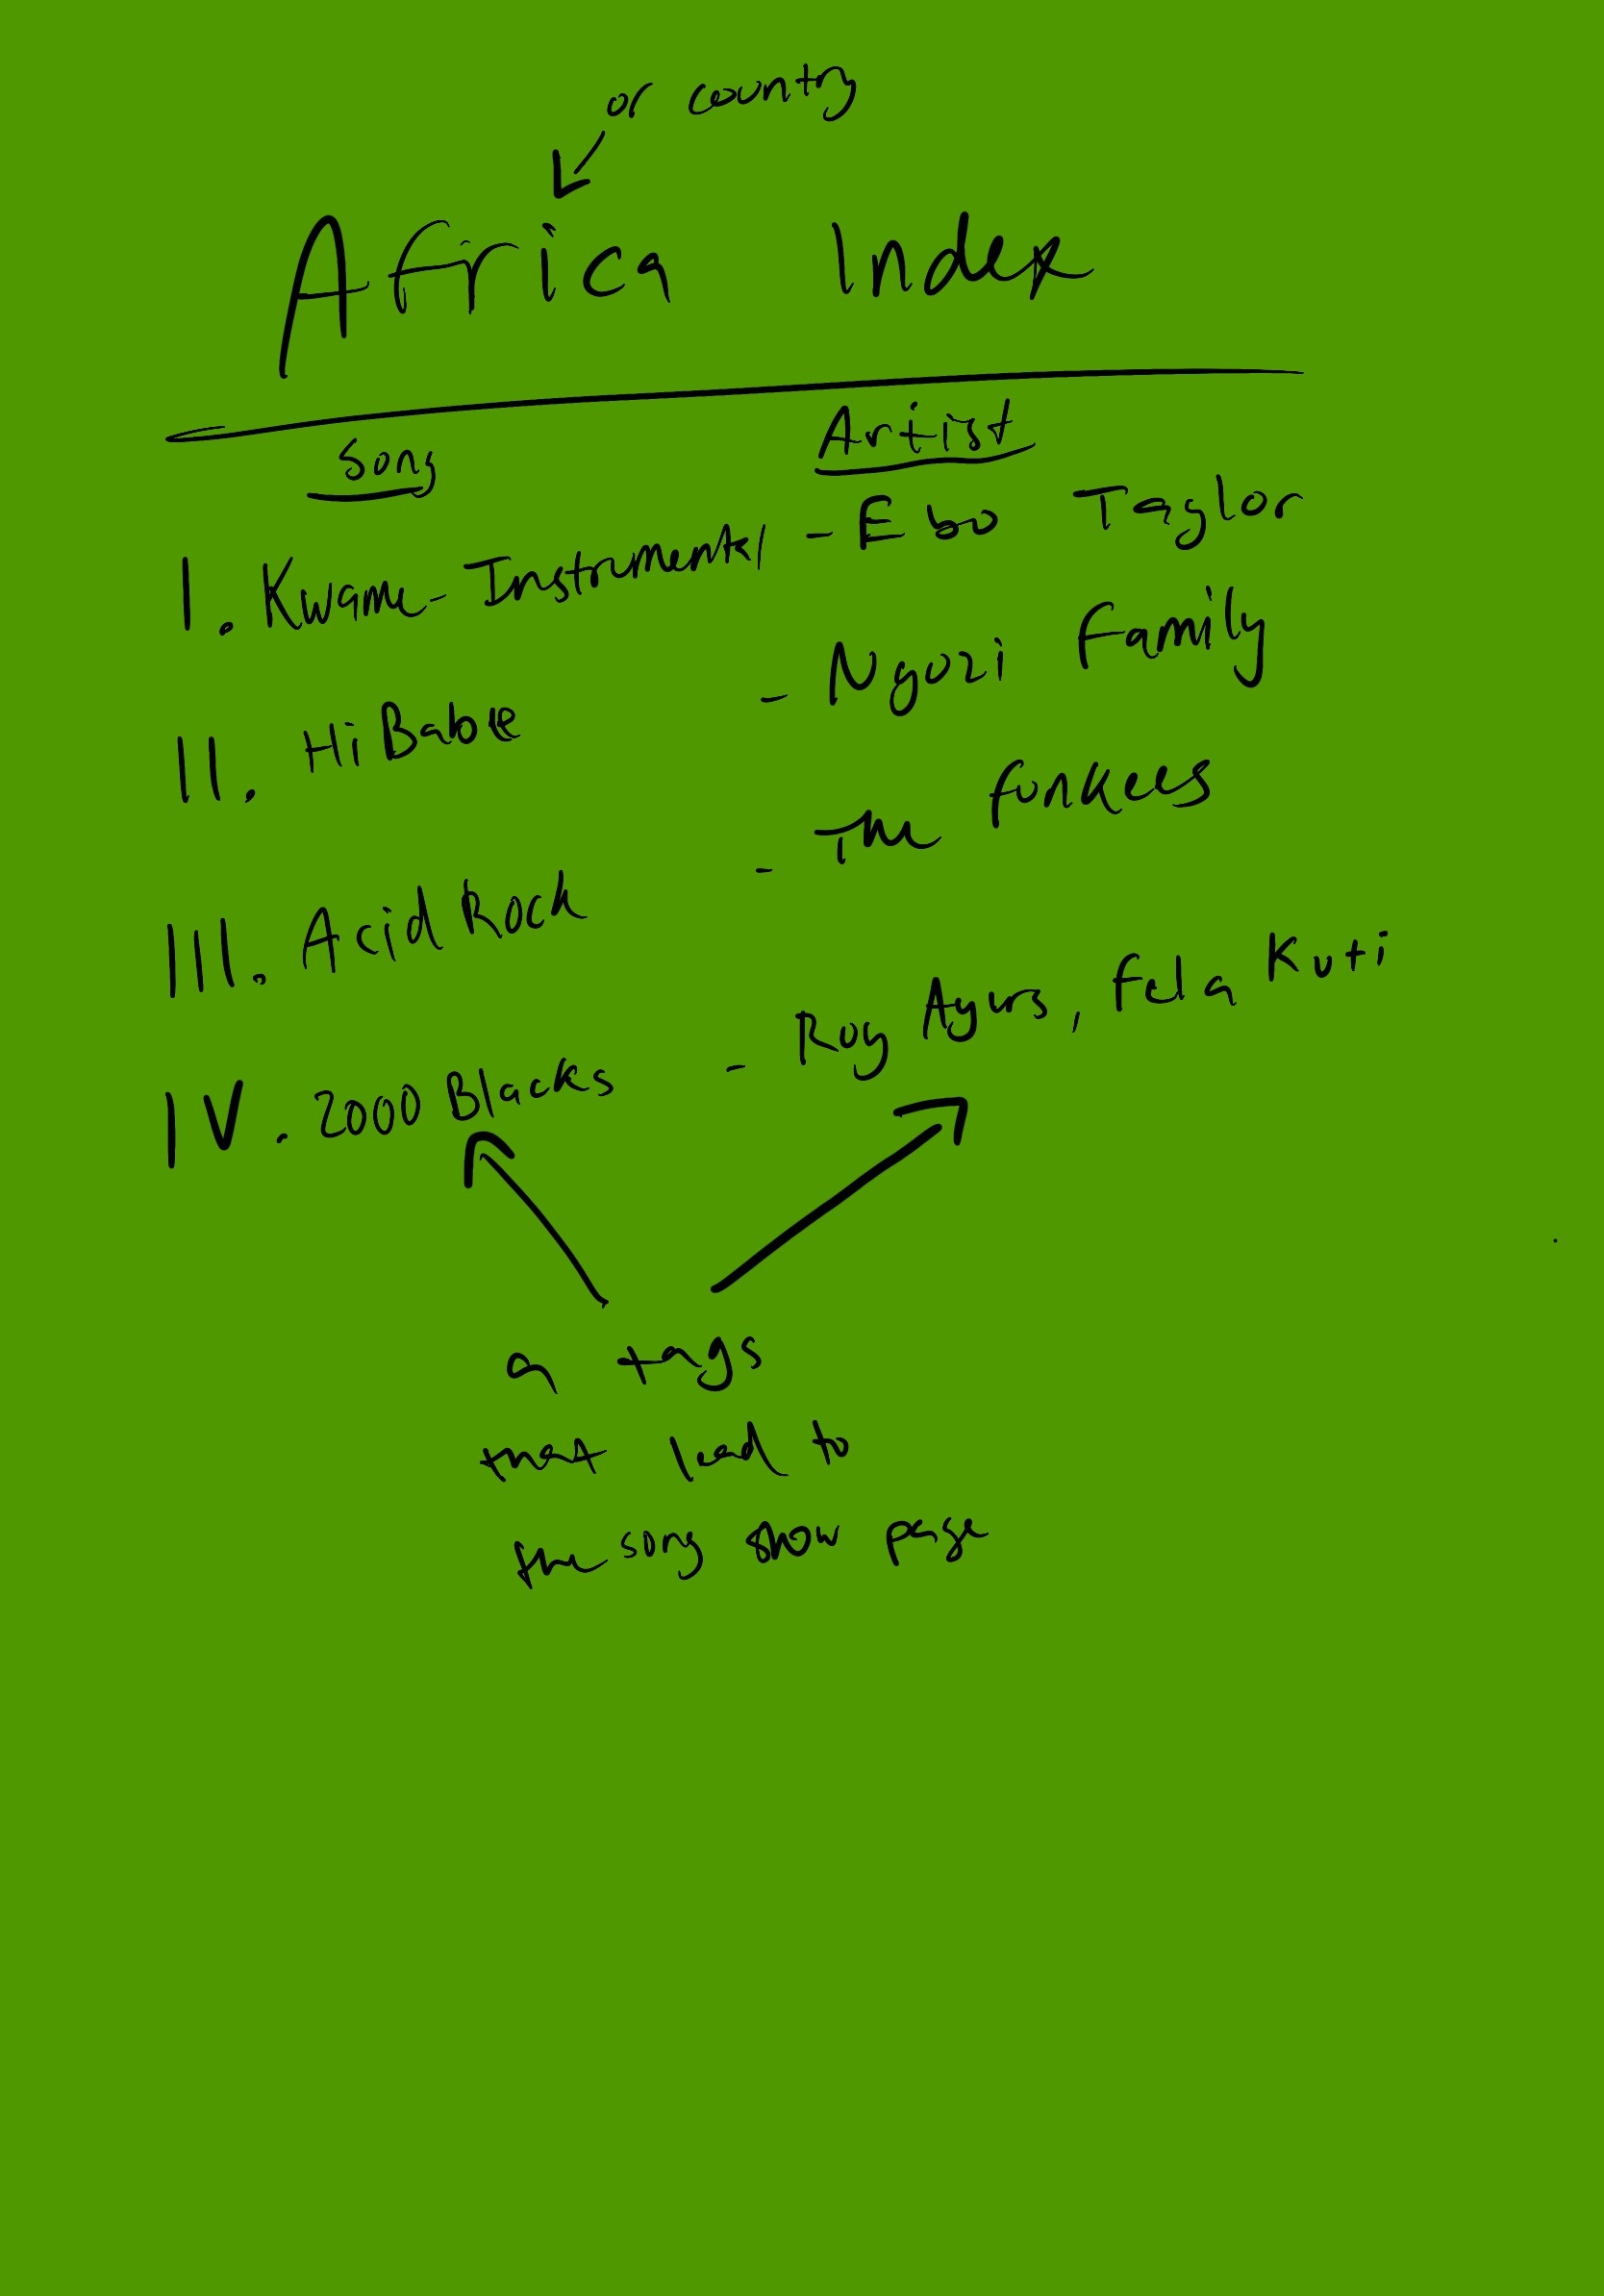 or country
Africa Index
Song Artist
I. Kwame - Instrumental - Ebo Taylor
II. Hi Babe - Ngozi Family
III. Acid Rock - The Funkees
IV. 2000 Blacks - Roy Ayers, Fela Kuti
a tags
that lead to
the song show page